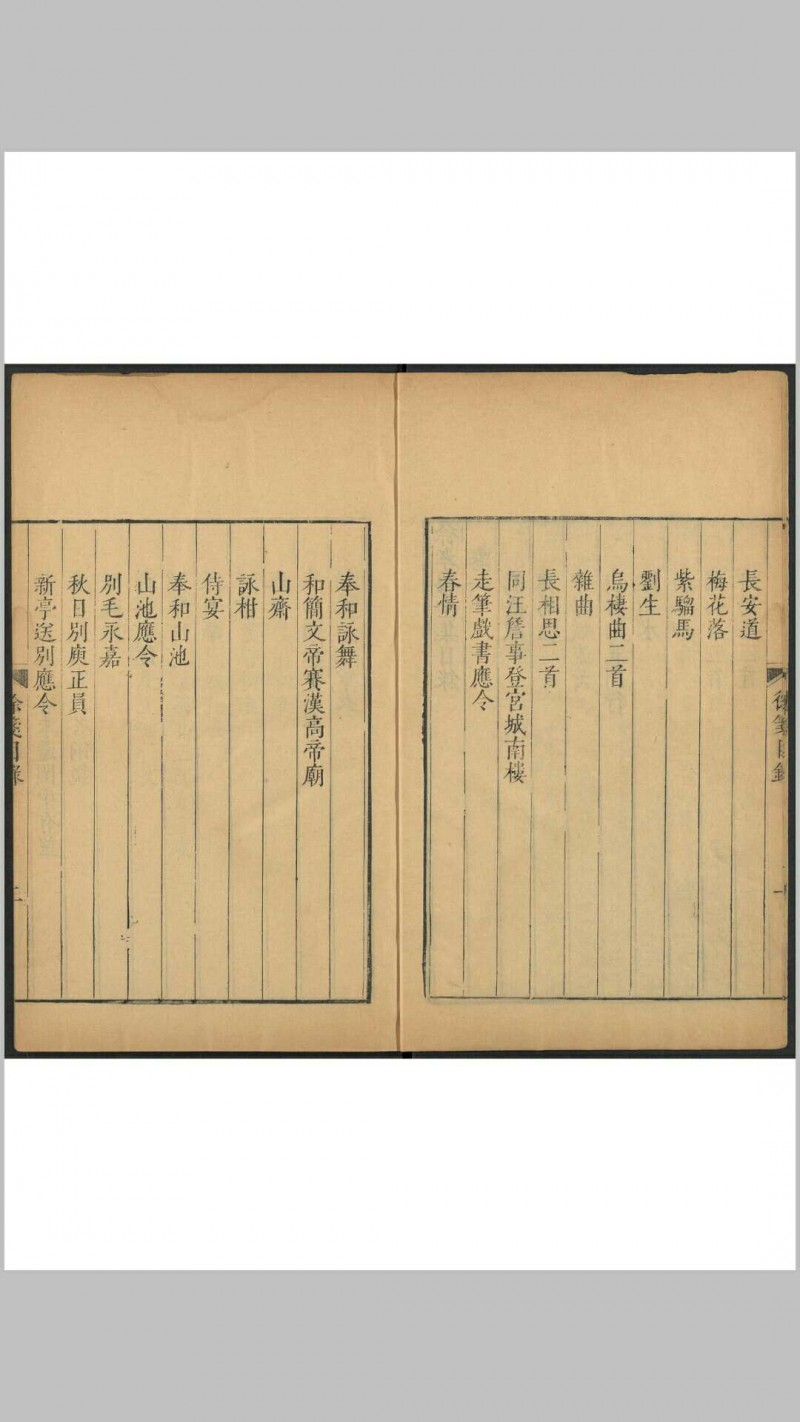 長安道
梅花落
紫騮馬
劉生
烏棲曲二首
雜曲
長相思二首
同江詹事登宮城南樓
走筆戲書應令
春情
奉和詠舞
和簡文帝賽漢高帝廟
山齋
詠柑
侍宴
奉和山池
山池應令
別毛永嘉
秋日別庾正員
新亭送別應令